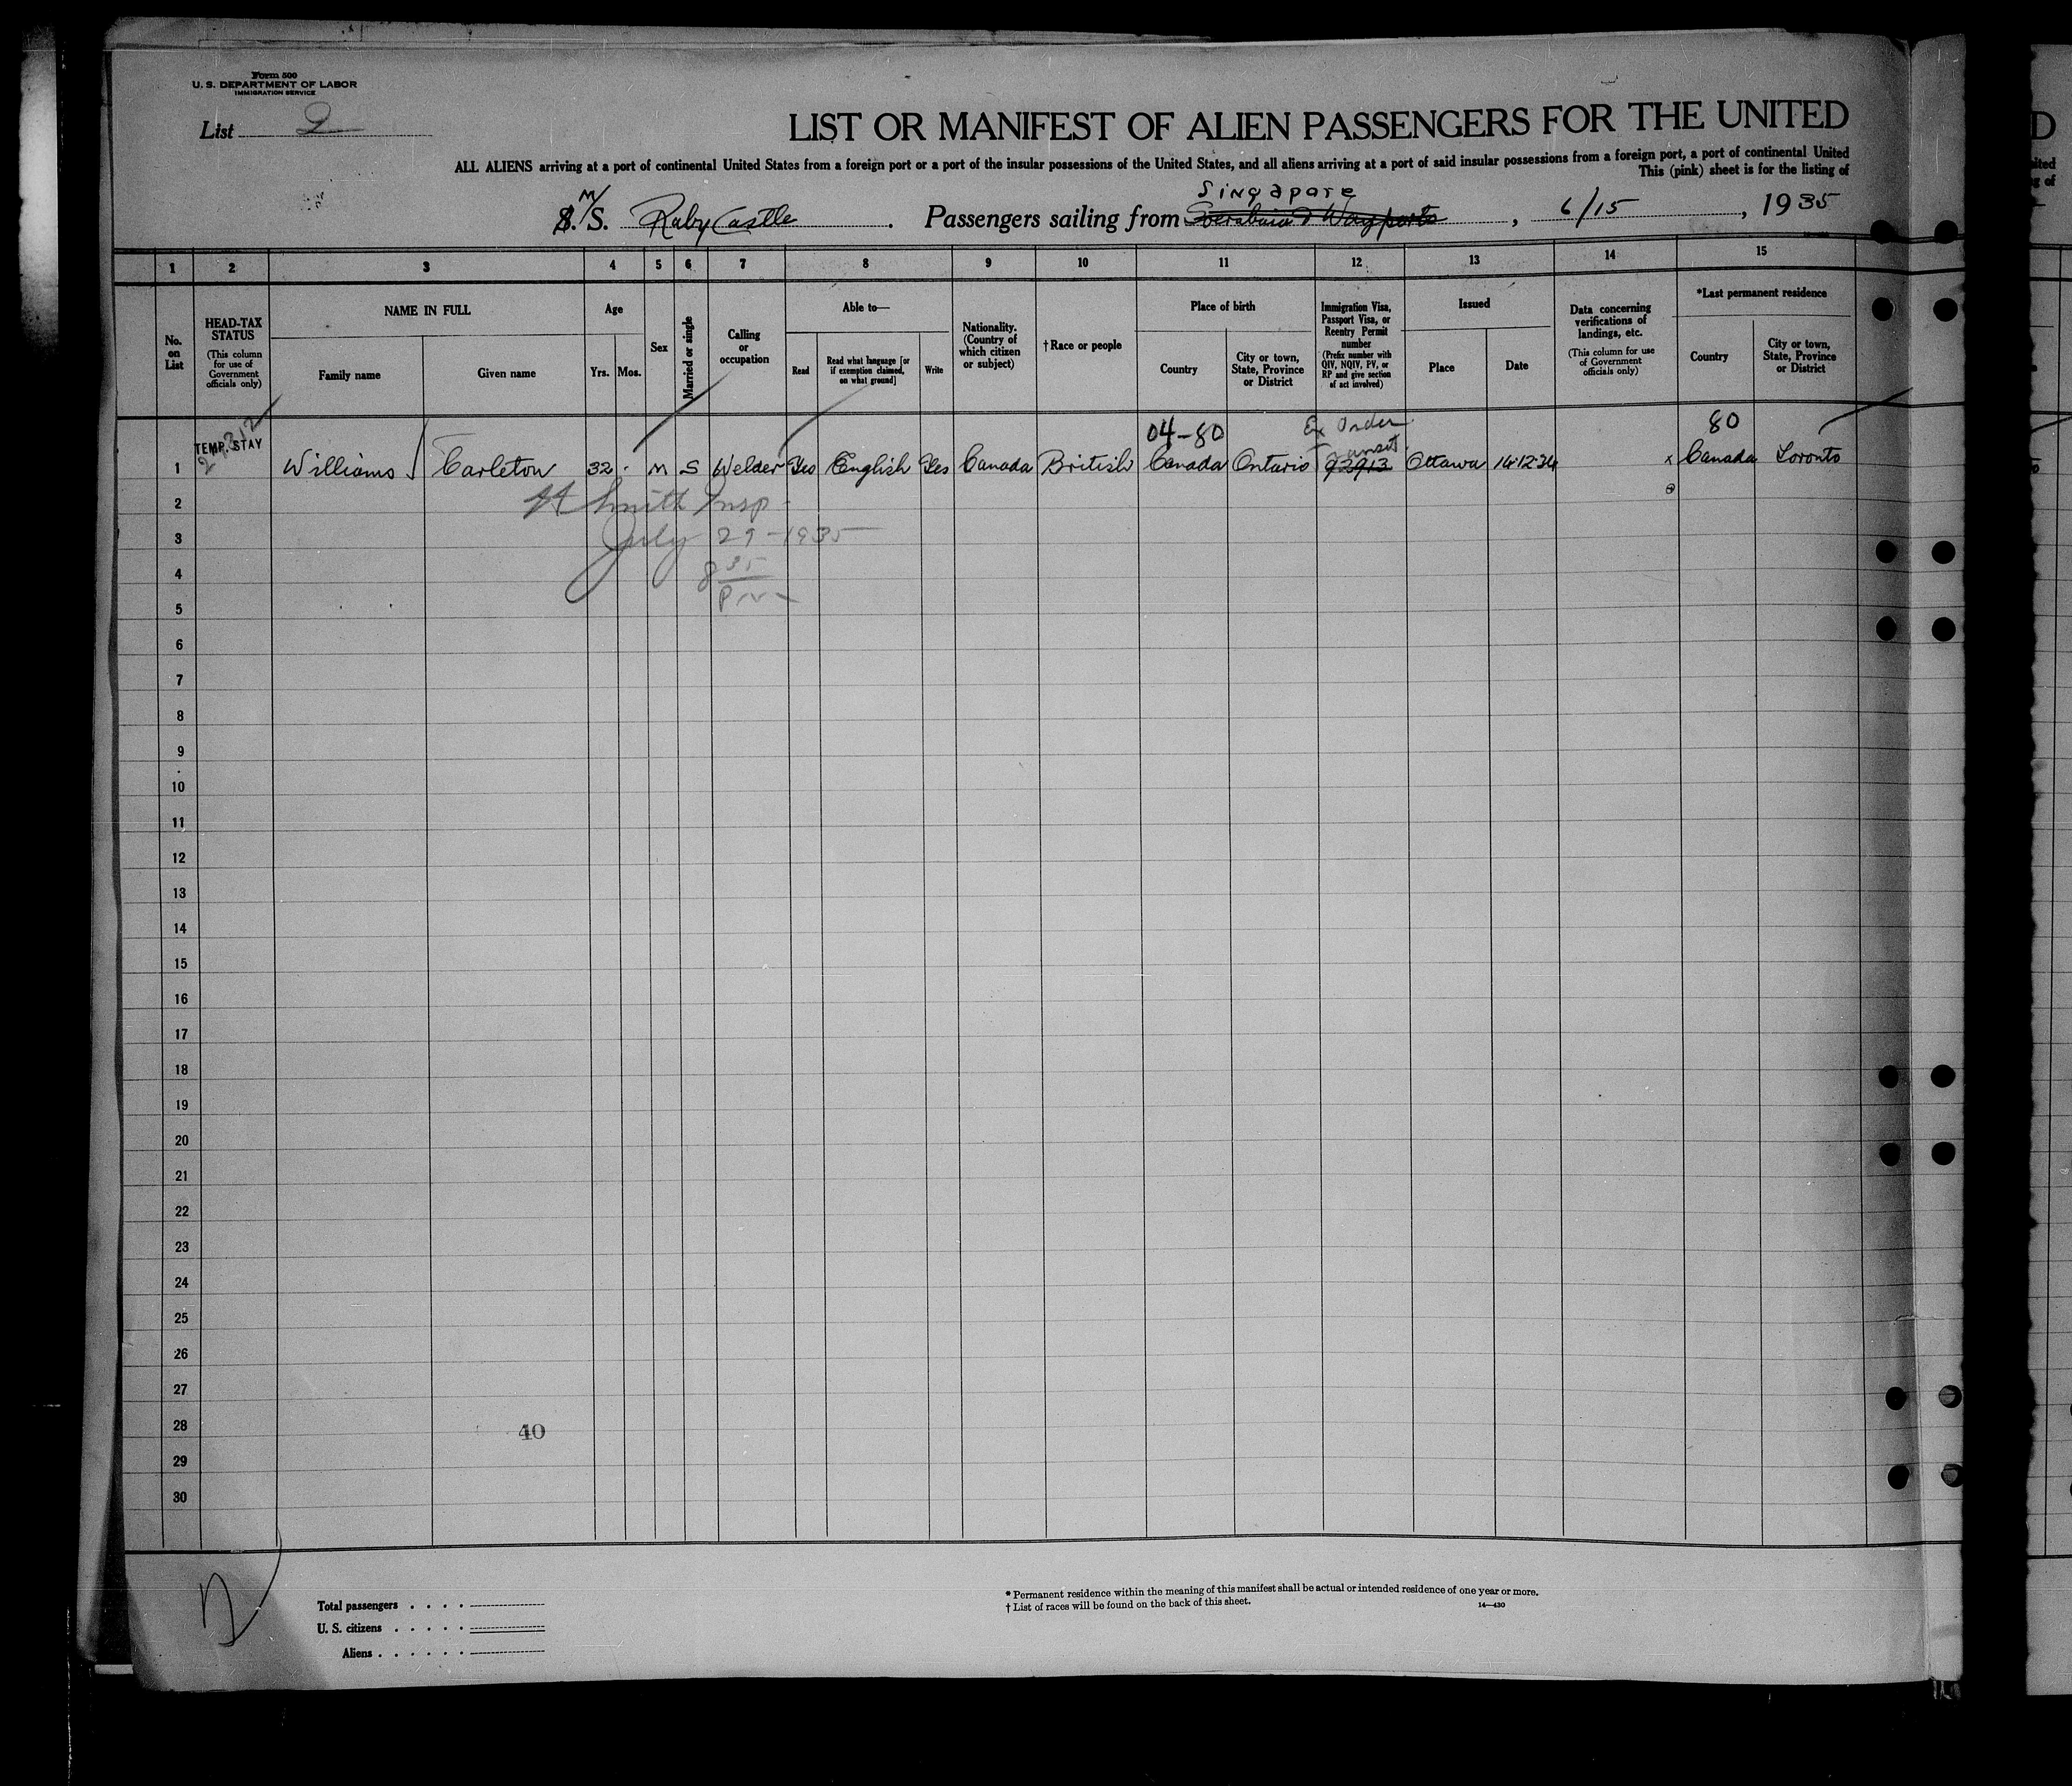 Form 500
U. S. DEPARTMENT OF LABOR
IMMIGRATION SERVICE
List 2
LIST OR MANIFEST OF ALIEN PASSENGERS FOR THE UNITED
ALL ALIENS arriving at a port of continental United States from a foreign port or a port of the insular possessions of the United States, and all aliens arriving at a port of said insular possessions from a foreign port, a port of continental United
This (pink) sheet is for the listing of
Singapore
M/S. Raby Castle. Passengers sailing from Soerabaia & Wayports, 6/15, 1935
1 2 3 4 5 6 7 8 9 10 11 12 13 14 15
No. on List
HEAD-TAX STATUS
(This column for use of Government officials only)
NAME IN FULL
Family name
Given name
Age
Yrs.
Mos.
Sex
Married or single
Calling or occupation
Able to—
Read
Read what language [or if exemption claimed, on what ground]
Write
Nationality. (Country of which citizen or subject)
†Race or people
Place of birth
Country
City or town, State, Province or District
Immigration Visa, Passport Visa, or Reentry Permit number
(Prefix number with QIV, NQIV, PV, or RP and give section of act involved)
Issued
Place
Date
Data concerning verifications of landings, etc.
(This column for use of Government officials only)
*Last permanent residence
Country
City or town, State, Province or District
04-80 Ex Order 80
TEMP. STAY Transit
1 Williams Carleton 32 M S Welder Yes English Yes Canada British Canada Ontario 93913 Ottawa 14-12-34 x Canada Toronto
2 Smith Insp
3 July 29-1935
4 8 35
5
6
7
8
9
10
11
12
13
14
15
16
17
18
19
20
21
22
23
24
25
26
27
28 40
29
30
Total passengers . . . .
U. S. citizens . . . . .
Aliens . . . . . .
* Permanent residence within the meaning of this manifest shall be actual or intended residence of one year or more.
† List of races will be found on the back of this sheet. 14—430